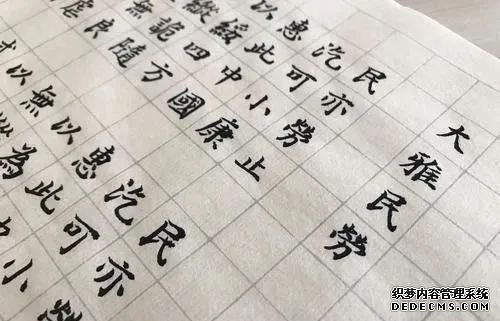 大雅民勞
民亦勞止
汔可小康
惠此中國
以綏四方
縱詭隨
無良
虐
民亦勞
汔可小
惠此中
以為
無
以
织梦内容管理系统
DEDECMS.COM